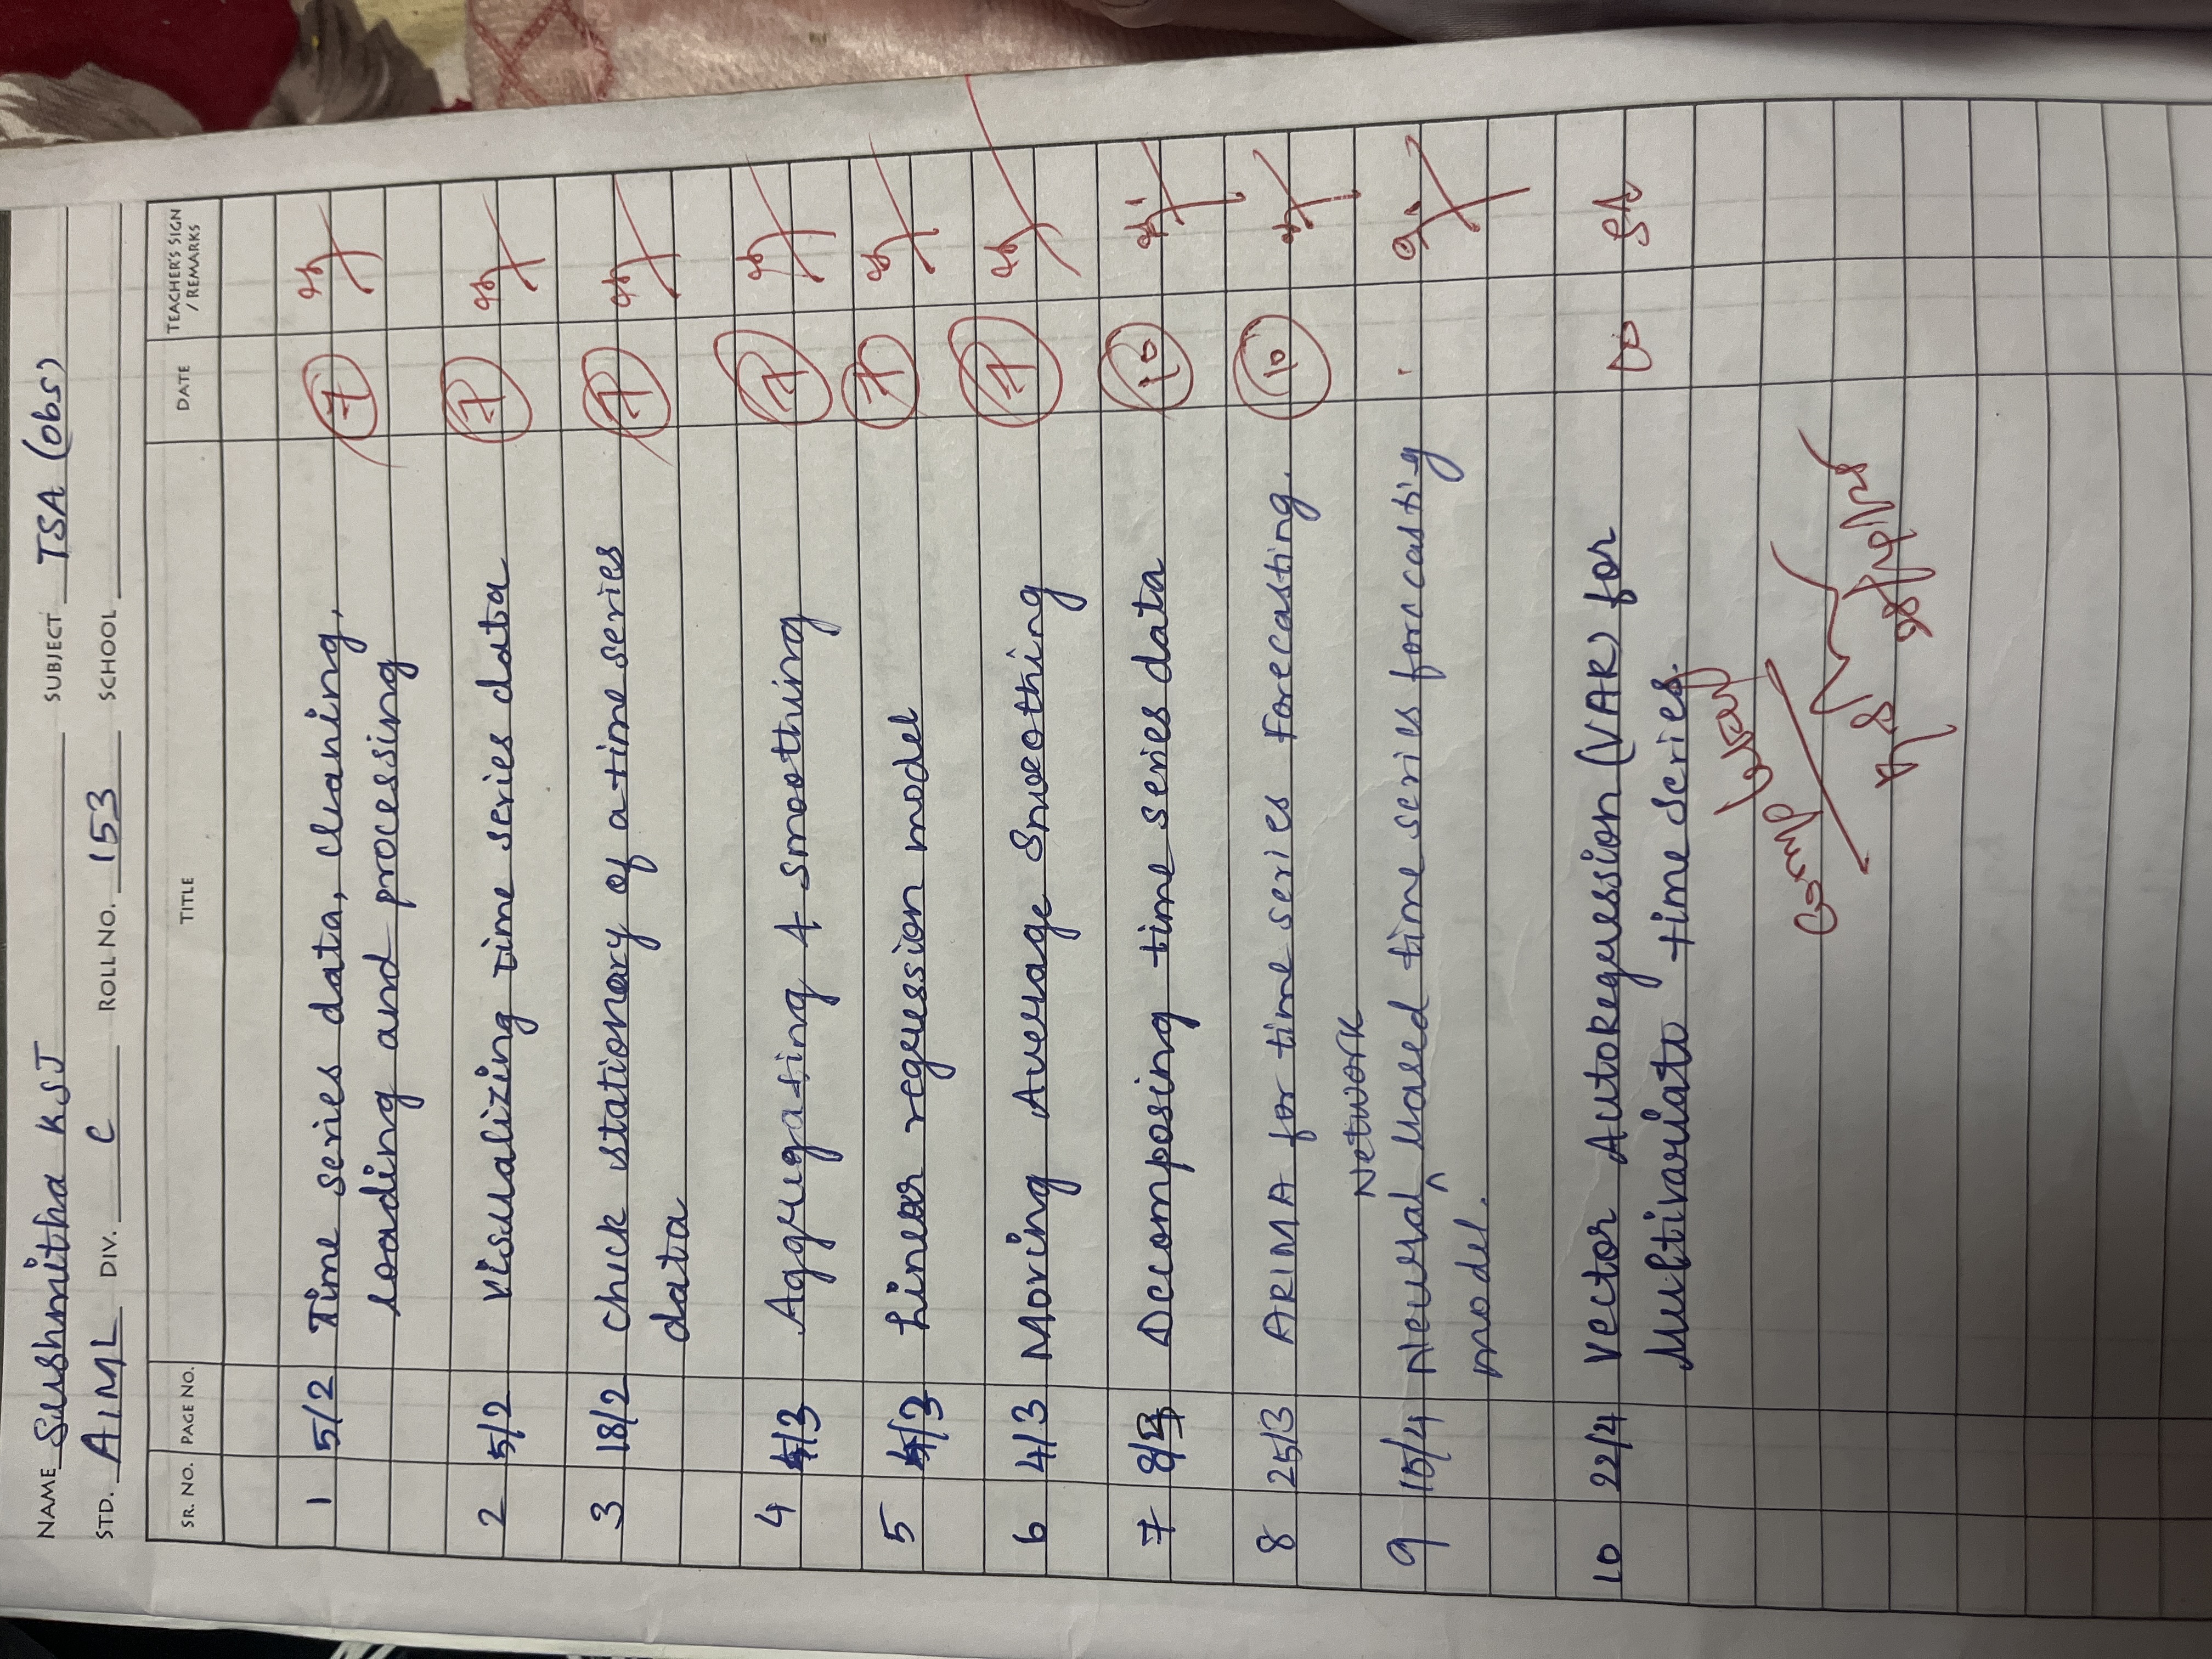 NAME Sushmitha K S J SUBJECT TSA (obs)
STD. AIML DIV. C ROLL NO. 153 SCHOOL
SR. NO. PAGE NO. TITLE DATE TEACHER'S SIGN / REMARKS
1 5/2 Time series data, cleaning, 7
loading and processing
2 5/2 Visualizing time series data 7
3 18/2 check stationary of a time series 7
data
4 4/3 Aggregating & smoothing 7
5 4/3 Linear regression model 7
6 4/3 Moving Average Smoothing 7
7 Decomposing time series data 10
8 25/3 ARIMA for time series Forecasting. 10
Network
9 15/4 Neural ^ based time series forecasting
model.
10 22/4 Vector AutoRegression (VAR) for 10
Multivariate time series.
Completed